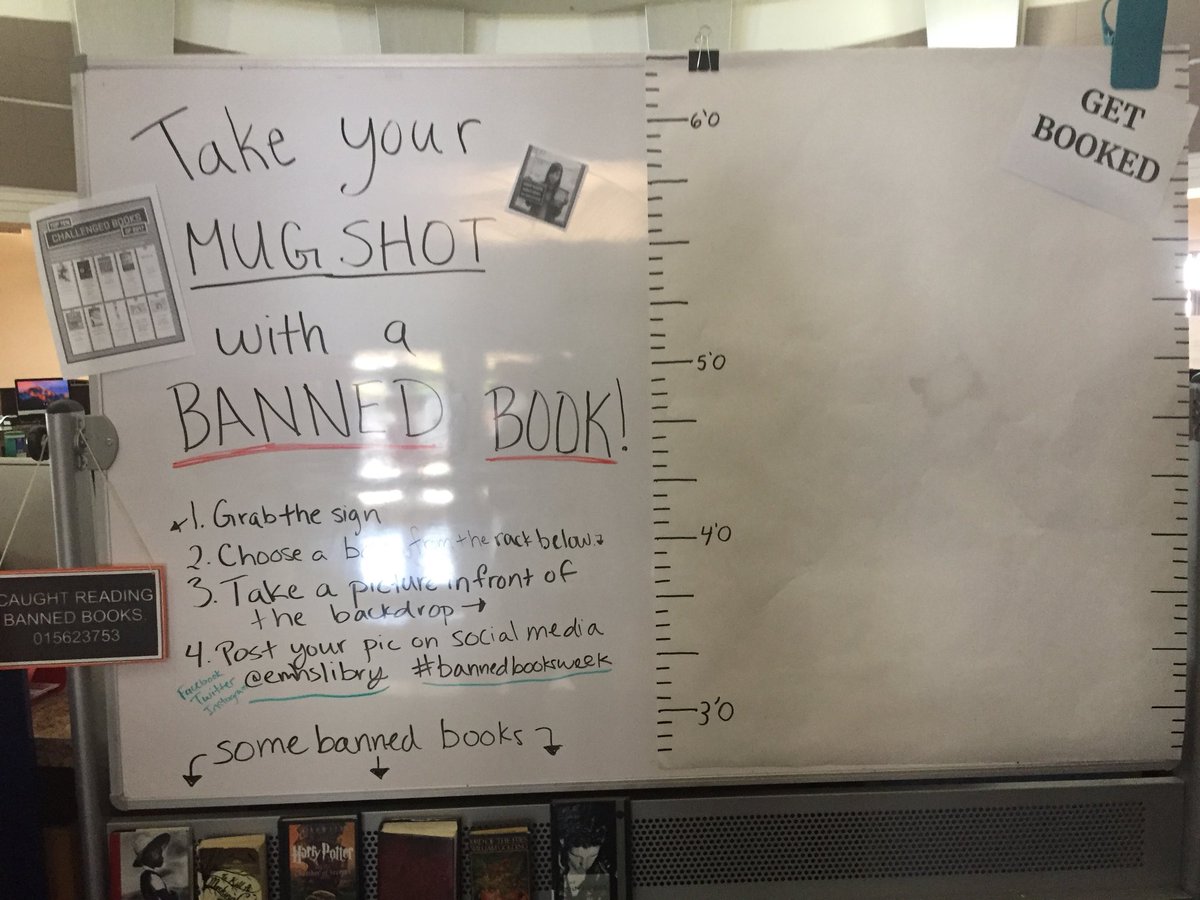 Take your
MUG SHOT
with a
BANNED BOOK!
1. Grab the sign
2. Choose a from the rack below.
3. Take a picture in front of
the backdrop →
4. Post your pic on social media
Facebook
Twitter
Instagram
@emhslibry #bannedbooksweek
some banned books
TOP TEN
CHALLENGED BOOKS
OF 2017
CAUGHT READING
BANNED BOOKS
015623753
6'0
5'0
4'0
3'0
GET
BOOKED
Harry Potter